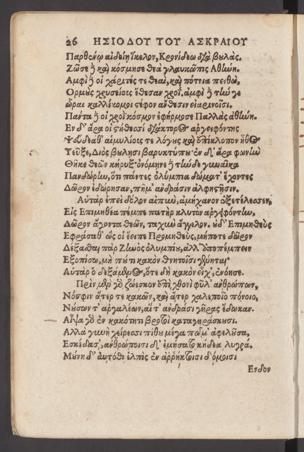 26 ΗΣΙΟΔΟΥ ΤΟΥ ΑΣΚΡΑΙΟΥ
Παρθένῳ αἰδοίῃ ἴκελον, Κρονίδεω διὰ βουλάς.
Ζῶσε δὲ καὶ κόσμησε θεὰ γλαυκῶπις Ἀθήνη.
Ἀμφὶ δέ οἱ χάριτές τε θεαὶ, καὶ πότνια πειθὼ,
Ὅρμους χρυσείους ἔθεσαν χροῒ, ἀμφὶ δὲ τήν γε
ὧραι καλλίκομοι στέφον ἄνθεσιν εἰαρινοῖσι.
Πάντα δέ οἱ χροῒ κόσμον ἐφήρμοσε Παλλὰς ἀθήνη.
Ἐν δ' ἄρα οἱ στήθεσσι διάκτορος ἀργειφόντης
Ψεύδεά θ' αἱμυλίους τε λόγους καὶ ἐπίκλοπον ἦθος
Τεῦξε, Διὸς βουλῇσι βαρυκτύπου· ἐν δ' ἄρα φωνὴν
Θῆκε θεῶν κῆρυξ· ὀνόμηνε δὲ τήνδε γυναῖκα
Πανδώρην, ὅτι πάντες ὀλύμπια δώματ' ἔχοντες
Δῶρον ἐδώρησαν, πῆμ' ἀνδράσιν ἀλφηστῇσιν.
Αὐτὰρ ἐπεὶ δόλον αἰπὺν, ἀμήχανον ἐξετέλεσσεν,
Εἰς Ἐπιμηθέα πέμπε πατὴρ κλυτὸν ἀργειφόντην,
Δῶρον ἄγοντα θεῶν, ταχὺν ἄγγελον. οὐδ' Ἐπιμηθεὺς
Ἐφράσαθ' ὥς οἱ ἔειπε Προμηθεὺς, μήποτε δῶρον
Δέξασθαι πὰρ Ζηνὸς ὀλυμπίου, ἀλλ' ἀποπέμπειν
Ἐξοπίσω, μή πού τι κακὸν θνητοῖσι γένηται
Αὐτὰρ ὁ δεξάμενος, ὅτε δὴ κακὸν εἶχ', ἐνόησε.
Πρὶν μὲν γὰρ ζώεσκον ἐπὶ χθονὶ φῦλ' ἀνθρώπων,
Νόσφιν ἄτερ τε κακῶν, καὶ ἄτερ χαλεποῖο πόνοιο,
Νούσων τ' ἀργαλέων, αἵτ' ἀνδράσι γῆρας ἔδωκαν.
Αἶψα γὰρ ἐν κακότητι βροτοὶ καταγηράσκουσι.
Ἀλλὰ γυνὴ χείρεσσι πίθου μέγα πῶμ' ἀφελοῦσα,
Ἐσκέδασ', ἀνθρώποισι δ' ἐμήσατο κήδεα λυγρά.
Μούνη δ' αὐτόθι ἐλπὶς ἐν ἀρρήκτοισι δόμοισι
Ενδον